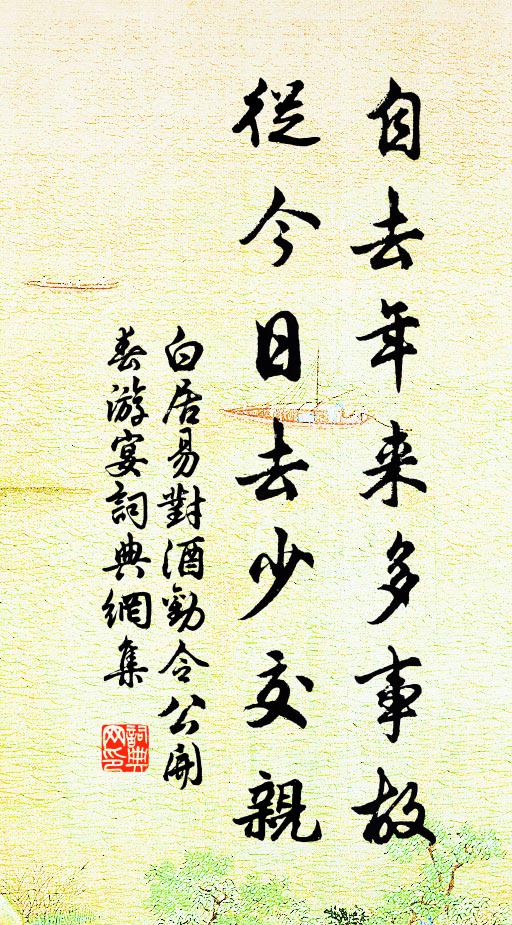 自去年来多事故
從今日去少交親
白居易對酒勸令公開
春游宴詞典網集
詞典
网印